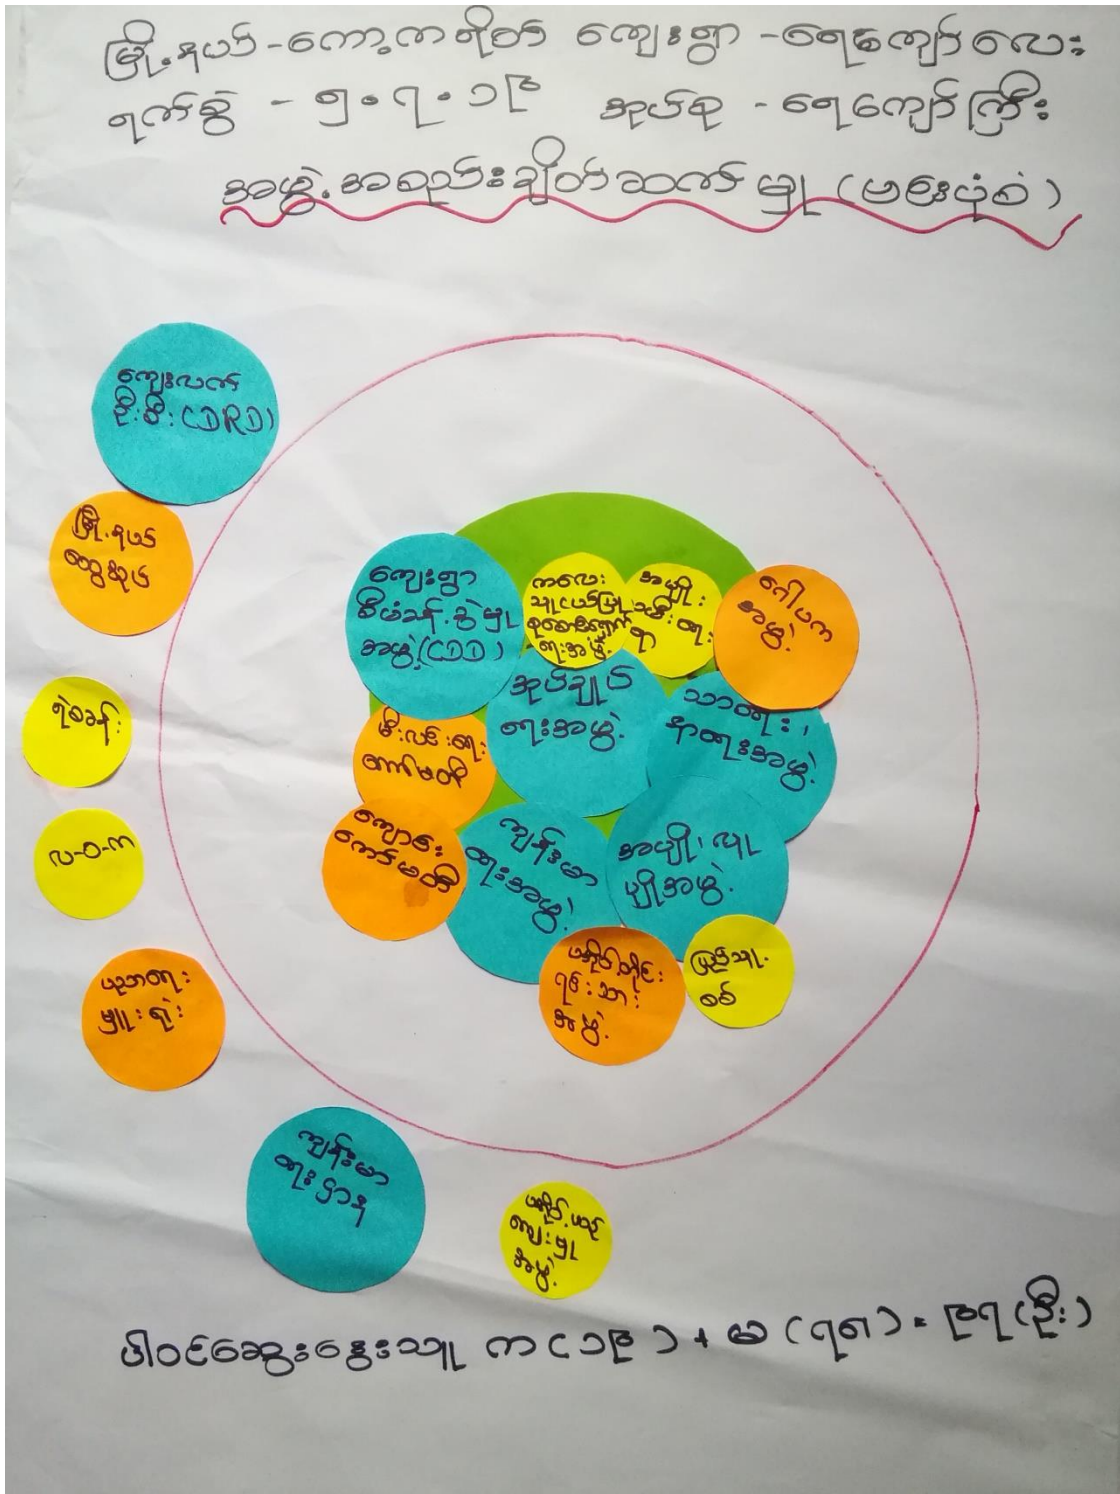 မြို့နယ် - ကော့ကရိတ် ကျေးရွာ - ရေကျော်လေး
ရက်စွဲ - ၅.၇.၁၉ အုပ်စု - ရေကျော်ကြီး
အဖွဲ့အစည်းချိတ်ဆက်မှု (ဗန်းပုံစံ)
ကျေးလက်
ဦးစီး (DRD)
မြို့နယ်
ထွေအုပ်
ရဲစခန်း
လ-ဝ-က
ပညာရေး
မှူးရုံး
ကျန်းမာ
ရေးဌာန
ကျေးရွာ
စီမံခန့်ခွဲမှု
အဖွဲ့ (CDD)
ကလေး
သူငယ်ပြု
စုစောင့်ရှောက်
ရေးအဖွဲ့
အမျိုး
သမီးရေး
ရာ
ဂေါပက
အဖွဲ့
အုပ်ချုပ်
ရေးအဖွဲ့
သာရေး၊
နာရေးအဖွဲ့
မီးလင်းရေး
ကော်မတီ
ကျောင်း
ကော်မတီ
ကျန်းမာ
ရေးအဖွဲ့
အပျို၊ လူ
ပျိုအဖွဲ့
တိုင်း
ရင်းသား
အဖွဲ့
ပြည်သူ့
စစ်
ကျေးမှု
အဖွဲ့
ပါဝင်ဆွေးနွေးသူ က (၁၉) + မ (၇၈) = ၉၇ (ဦး)